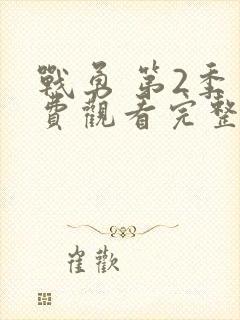 戰勇 第2季
費觀看完整
崔歡